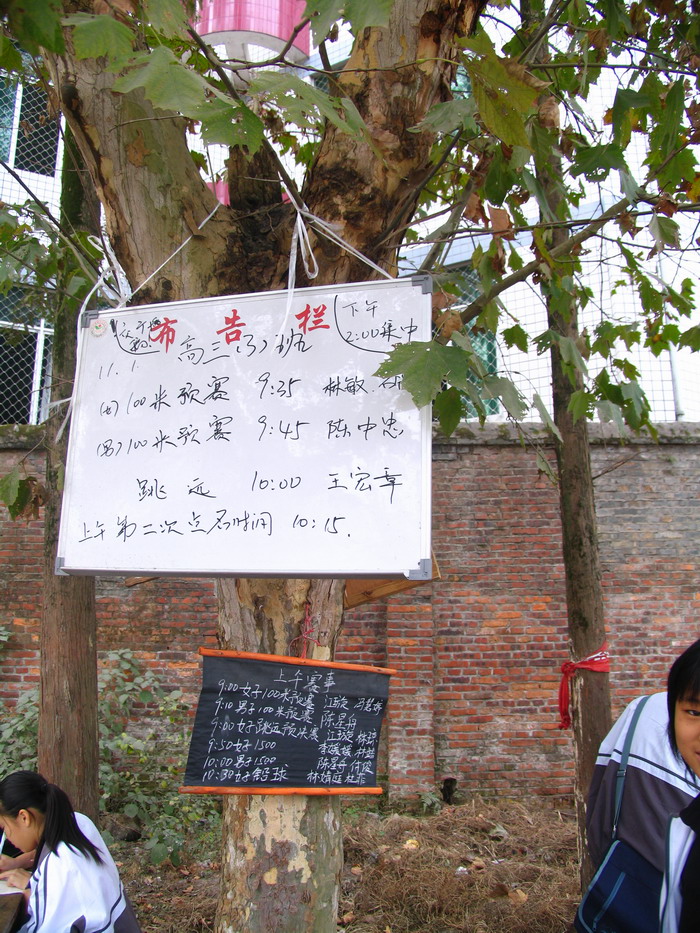 布告栏
下午
2:00集中
高三(3)班
11.1.
(女)100米预赛 9:35 林敏.
(男)100米预赛 9:45 陈中忠
跳远 10:00 王宏章
上午第二次点名时间 10:15.
上午赛事
9:00女子100米预赛 江璇
9:10男子100米预赛 陈星舟
9:00女子跳远预决赛 江璇 林琼
9:50女子1500 李媛媛 林茹
10:00男子1500 陈星舟 付俊
10:30女子铅球 林婧